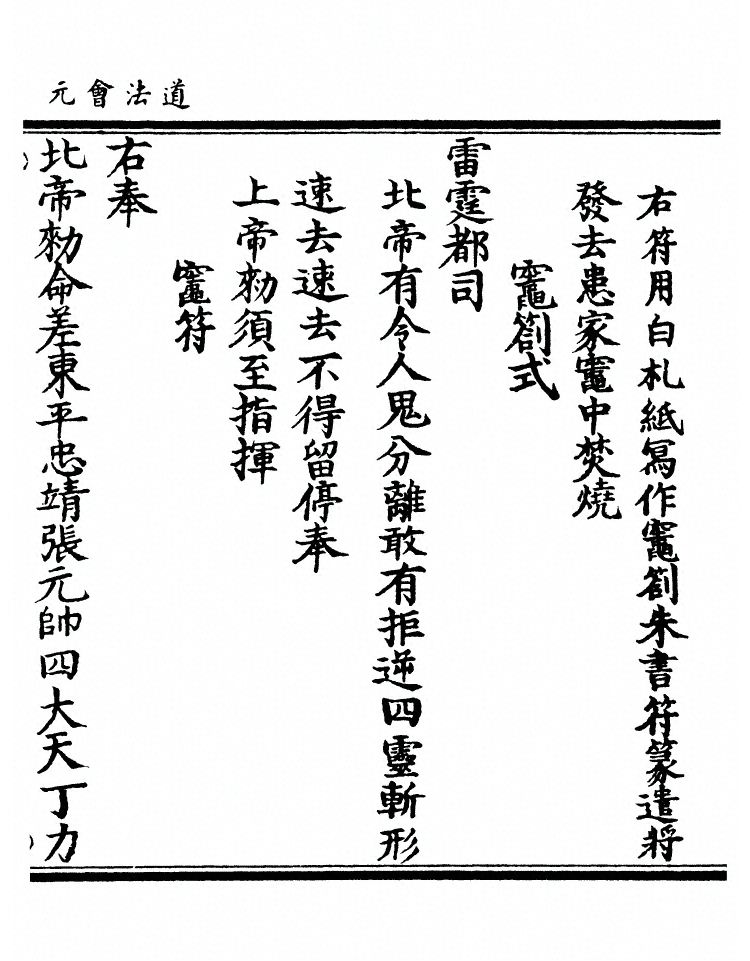 道法會元
右符用白札紙寫作竈劄朱書符篆遣將
發去患家竈中焚燒
竈劄式
雷霆都司
北帝有令人鬼分離敢有拒逆四靈斬形
速去速去不得留停奉
上帝勑須至指揮
竈符
右奉
北帝勑命差東平忠靖張元帥四大天丁力